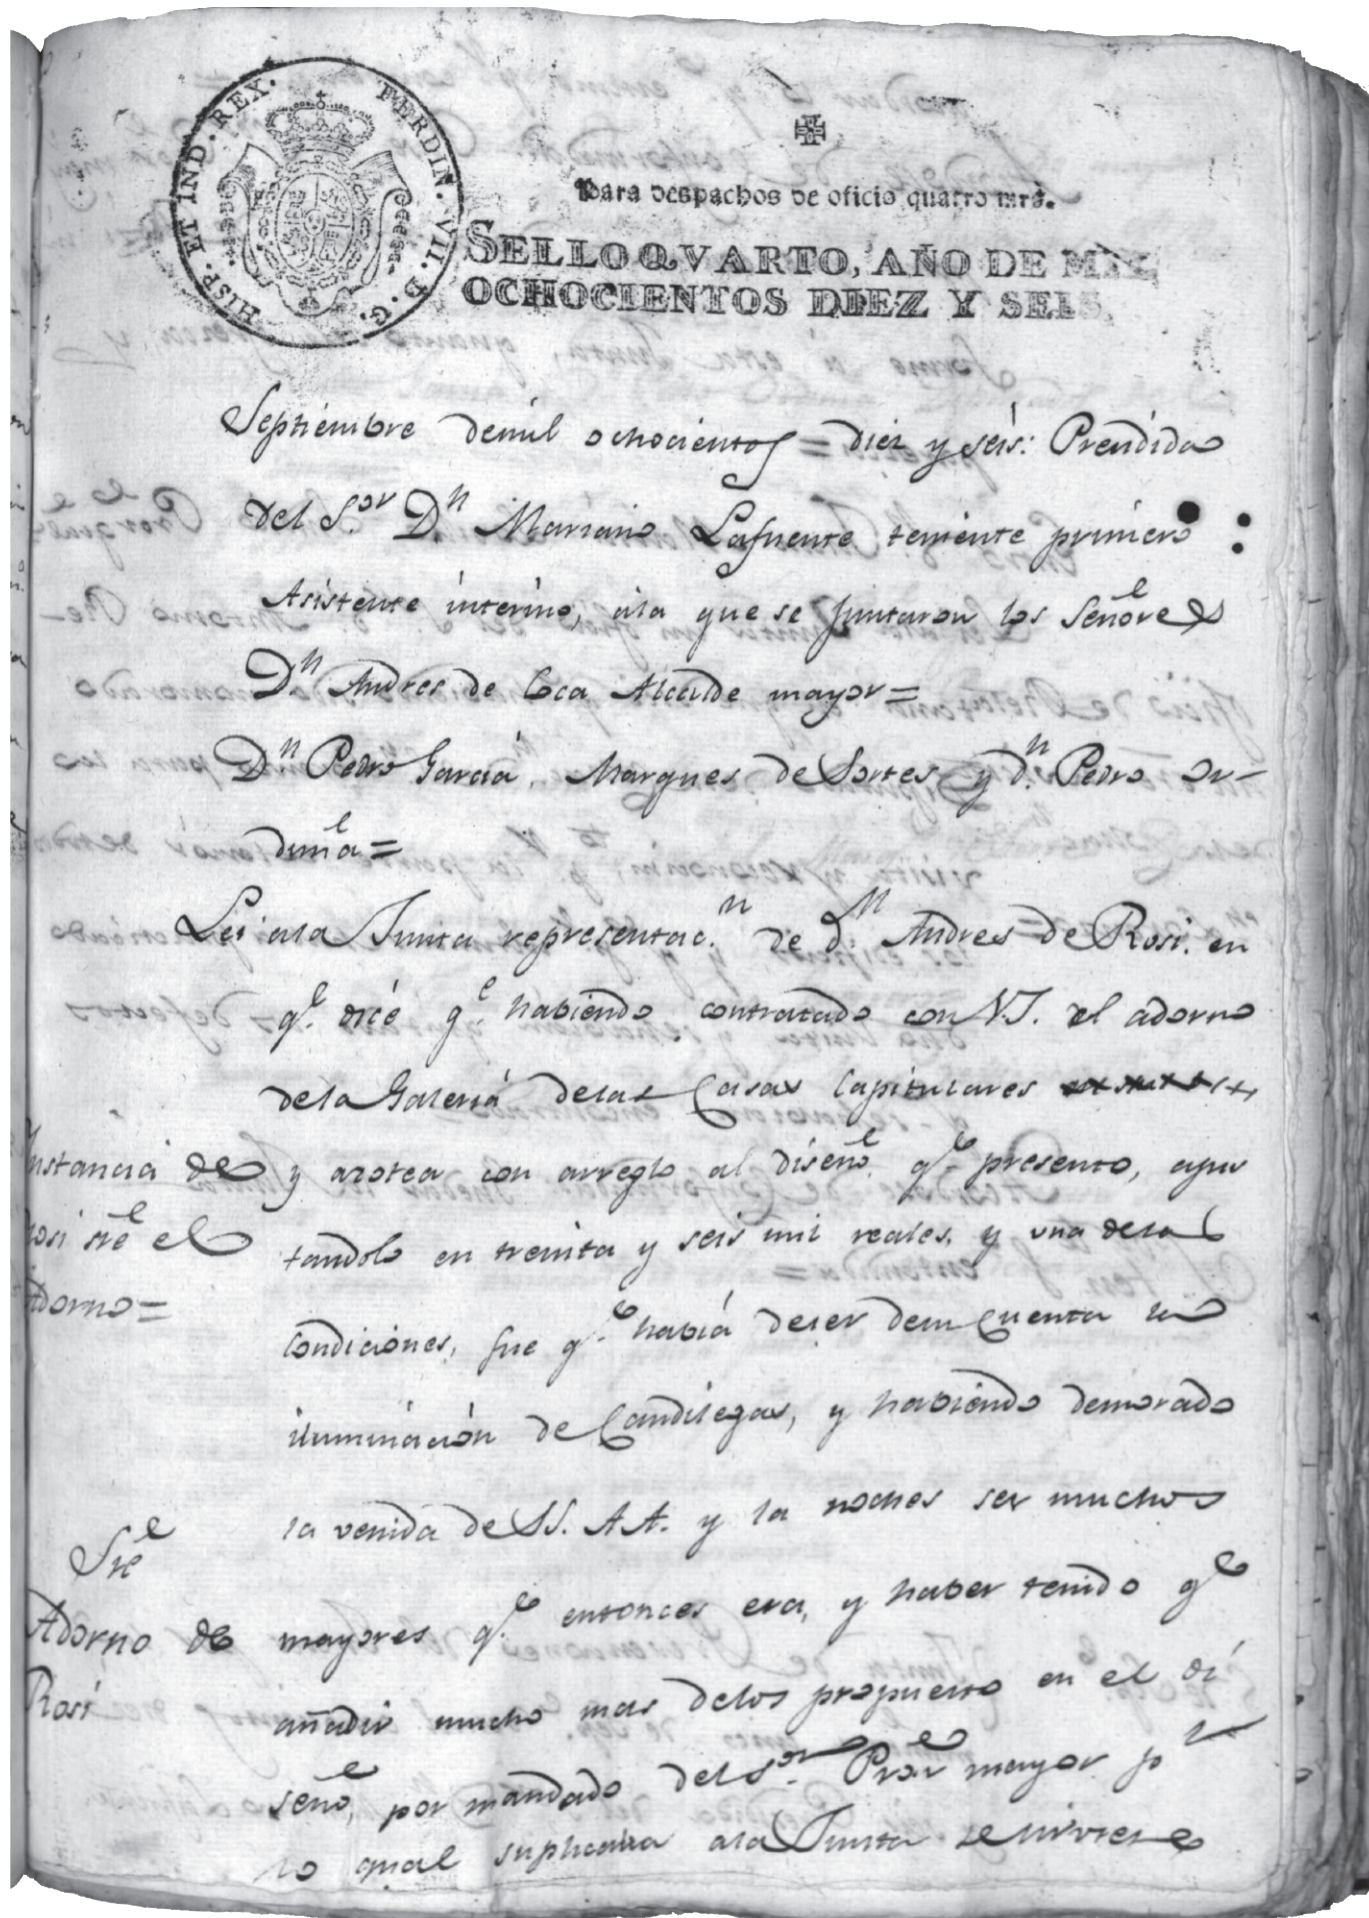 HISP. ET IND. REX. FERDIN. VII. D. G.
Para despachos de oficio quatro mrs.
SELLO QVARTO, AÑO DE MIL
OCHOCIENTOS DIEZ Y SEIS.
Septiembre demil ochocientos = diez y seis: Precidida
del S.or D.n Mariano Lafuente teniente primero
Asistente interino, ala que se juntaron los Señores
D.n Andres de Coca Alcalde mayor =
D.n Pedro Garcia, Marques de Sortes y d.n Pedro Or-
duña =
Lei ala Junta representac.n de d.n Andres de Rosi. en
q.e dice q.e habiendo contratado con V.S. el adorno
dela Galeria delas Casas Capitulares
Instancia de
Rosi sre el
Adorno =
y azotea con arreglo al diseño q.e presento, ajus
tandolo en treinta y seis mil reales, y una delas
Condiciones, fue q.e había deser desu Cuenta la
iluminación de Candilejas, y habiendo demorado
la venida de SS. AA. y la noches ser muchos
Sre
Adorno de
Rosi
mayores q.e entonces era, y haber tenido q.e
añadir mucho mas delos propuesto en el di
seño, por mandado del S.or Pror mayor p.r
lo qual suplicaba ala Junta se sirviese